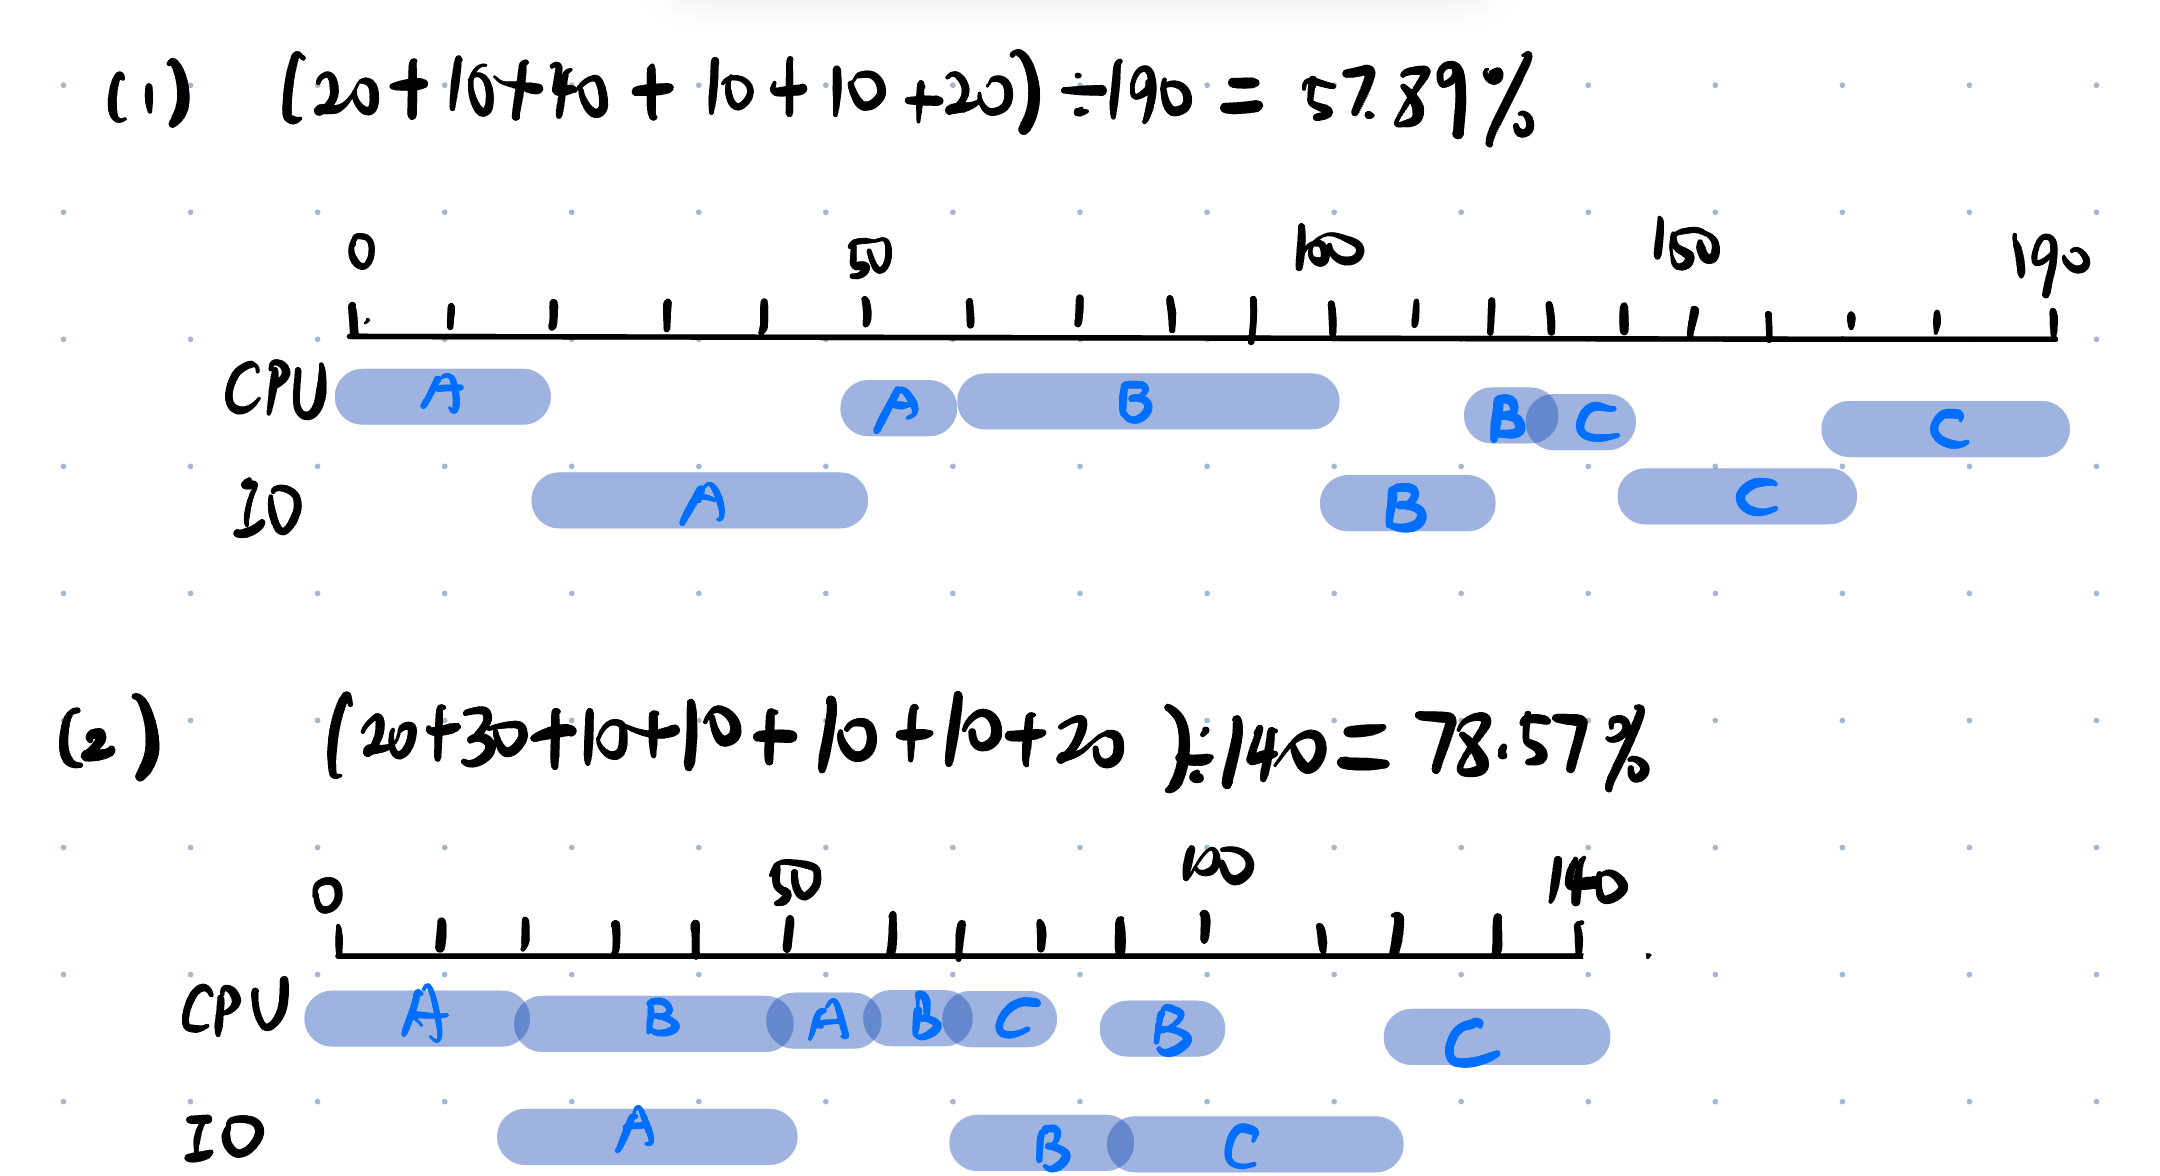 (1) (20+10+40+10+10+20)÷190=57.89%
0 50 100 150 190
CPU A A B B C C
IO A B C
(2) (20+30+10+10+10+10+20)÷140=78.57%
0 50 100 140
CPU A B A B C B C
IO A B C